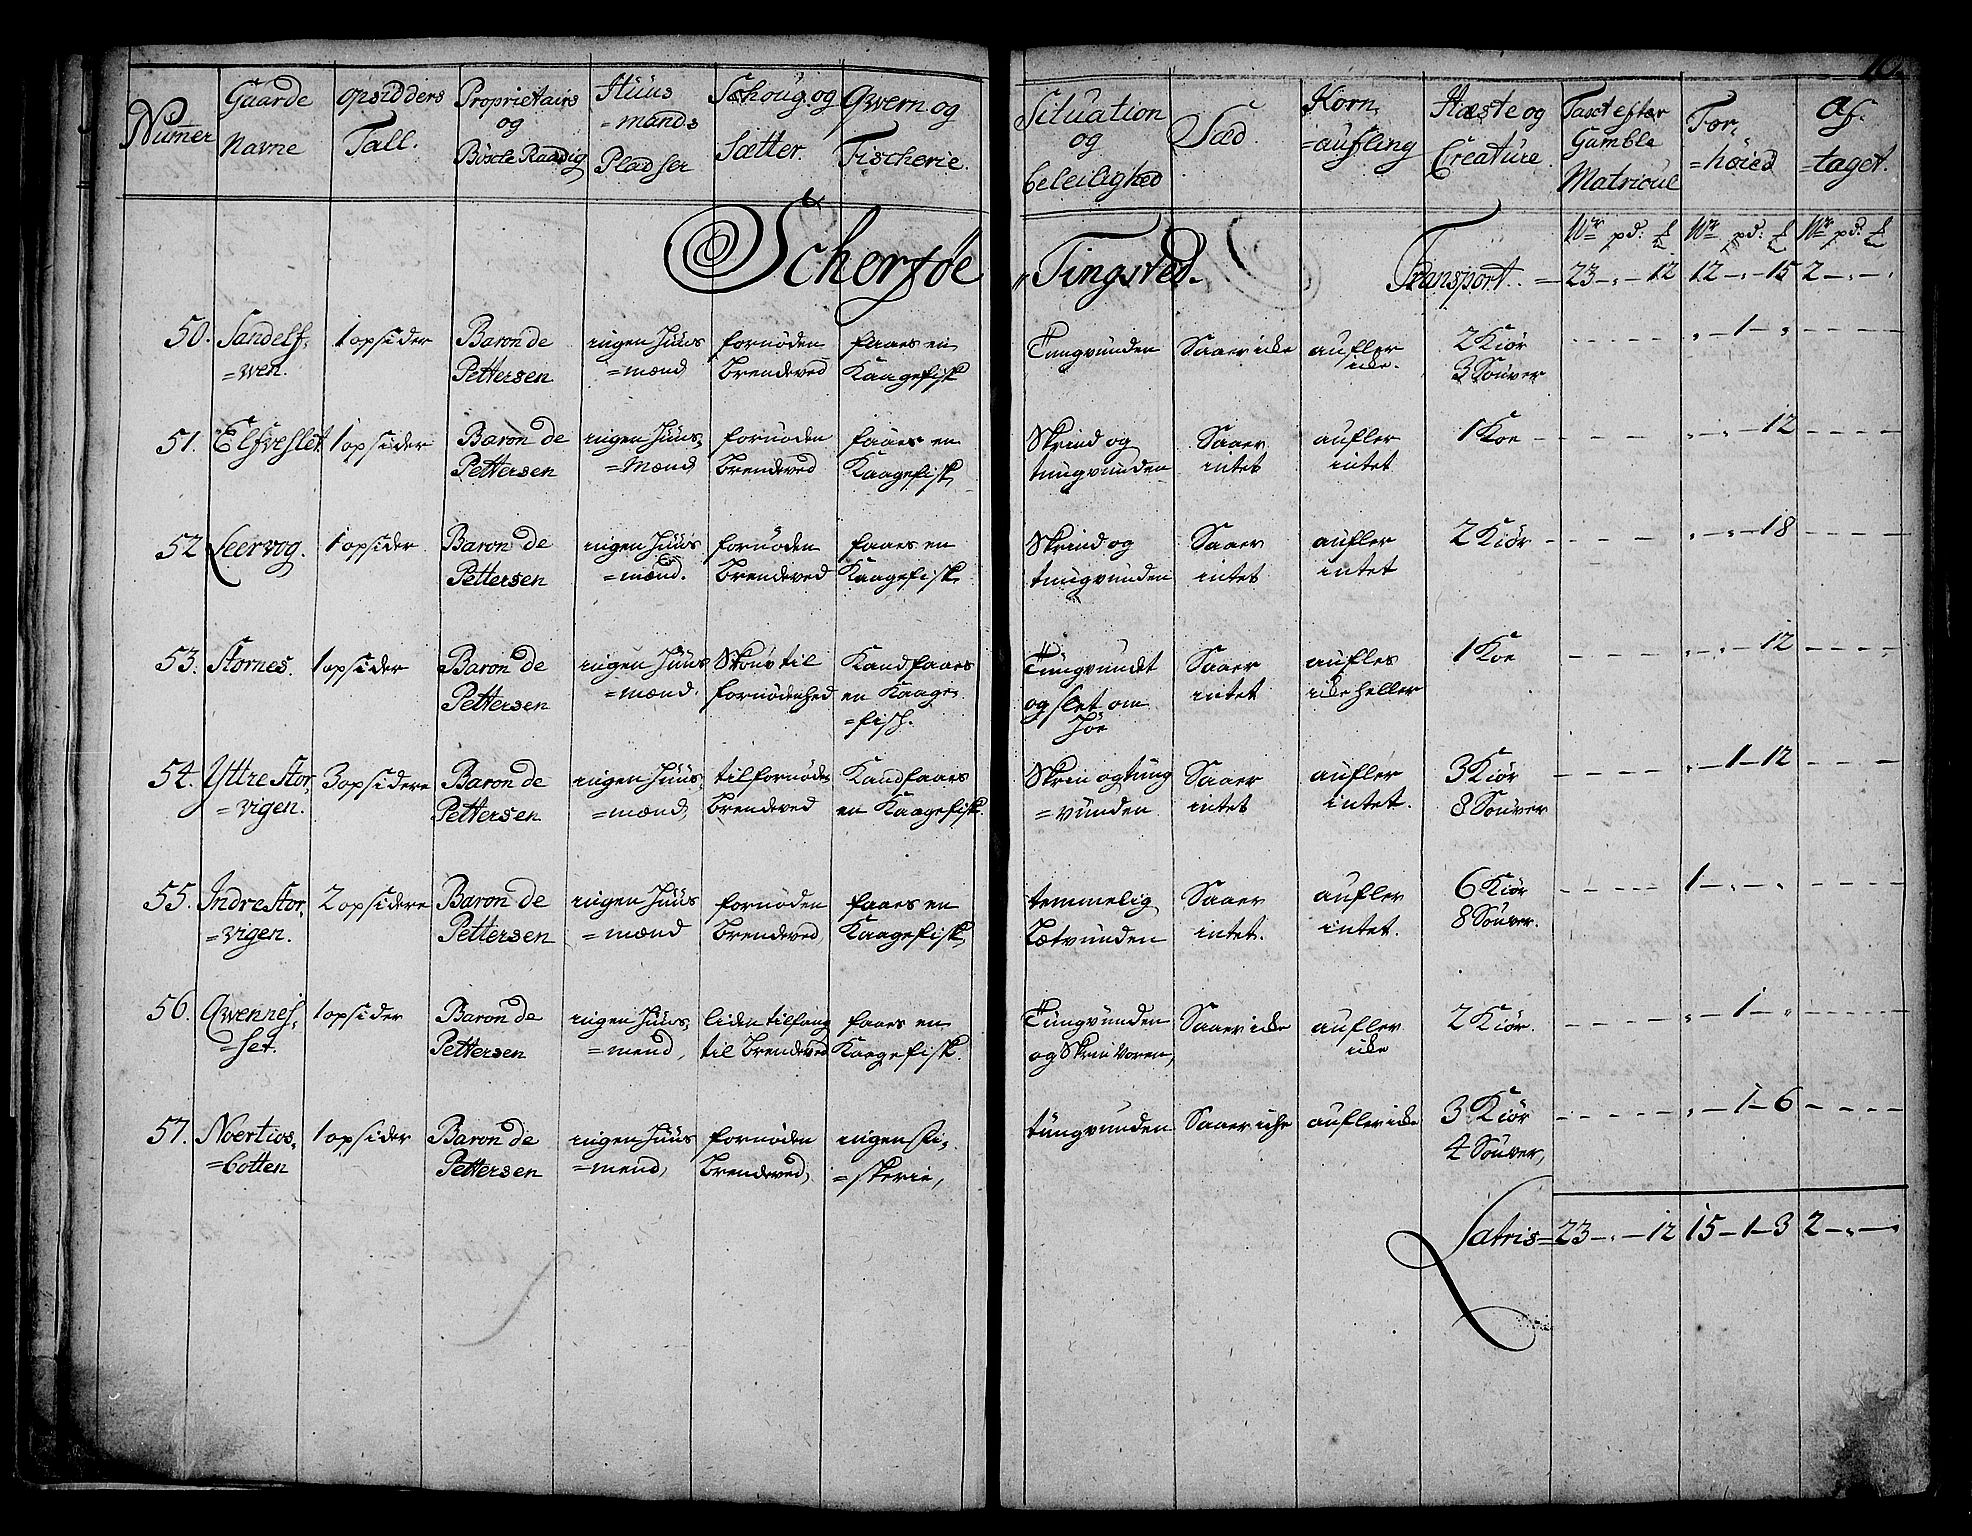 10.
Numer | Gaarde Navne | opsidders Tall. | Proprietairs og Böxle Raadig | Huus =mands Pladser | Schoug. og Sætter. | Qvern og Fischerie. | Situation og beleilighed | Sæd. | Korn =aufling | Hæste og Creature. | Taxt efter Gamble Matricul | For, =höied | Af. =taget.
Scherföe Tingsted.
Wr pd: £ | Wr pd: £ | Wr pd: £
Transport. = 23 - " - 12 | 12 - " - 15 | 2 - " - "
50. | Sandelf= =wen. | 1 opsider | Baron de Pettersen | ingen Huus =mænd | fornöden Brendeved | faaes en Kaagefisk | Tungvunden | Saaer icke | aufler icke. | 2 Kiör 3 Souver | - - - - - | " - 1 - " | - - - -
51. | Elfveslet | 1 opsider | Baron de Pettersen | ingen Huus, =Mænd | fornöden Brendeved | faaes en Kaagefisk, | Skrind og tungvunden | Saaer intet | aufler intet | 1 Koe | - - - - | " - " - 12 | - - - -
52 | Leervog. | 1 opsider | Baron de Pettersen | ingen Huus =mænd. | fornöden Brendeved | faaes en Kaagefisk | Skrind og tungvunden | Saaer intet | aufler intet | 2 Kiör | - - - - | " - " - 18 | - - - -
53. | Stornes. | 1 opsider | Baron de Pettersen | ingen Huus =mænd, | Skouv til fornödenhed | Kand faaes en Kaage= =fisch. | Tungvundet og slet om Höe | Saaer intet | aufles icke heller | 1 Koe | - - - - | " - " - 12 | - - - -
54. | Yttre Stor, =vigen. | 3 opsidere | Baron de Pettersen | ingen Huus, =mænd, | til fornöden Brendeved | Kand faaes en Kaagefisk. | Skrin og tung =vunden | Saaer intet | aufler intet. | 3 Kiör 8 Souver | - - - - | " - 1 - 12 | - - - -
55. | Indre Stor, =vigen. | 2 opsidere | Baron de Pettersen | ingen Huus =mænd | fornöden Brendeved, | faaes en Kaagefisk, | temmelig Letvunden | Saaer intet. | aufler intet. | 6 Kiör 8 Souver. | - - - - | 1 - " - " | - - - -
56. | Qvennes, =set. | 1 opsider | Baron de Pettersen | ingen Huus, =mend, | liden tilfang til Brendeved | faaes en Kaagefisk. | Tungvunden og Skrin Voren, | Saaer icke | aufler icke | 2 Kiör. | - - - - | " - 1 - " | - - - -
57. | Noertios, =botten | 1 opsider | Baron de Pettersen | ingen Huus =mend, | fornöden Brendeved, | ingen Fi= =skerie, | tungvunden | Saaer iche | aufler icke | 3 Kiör 4 Souver, | - - - - | " - 1 - 6 | - - - -
Latris = 23 - " - 12 | 15 - 1 - 3 | 2 - " - "